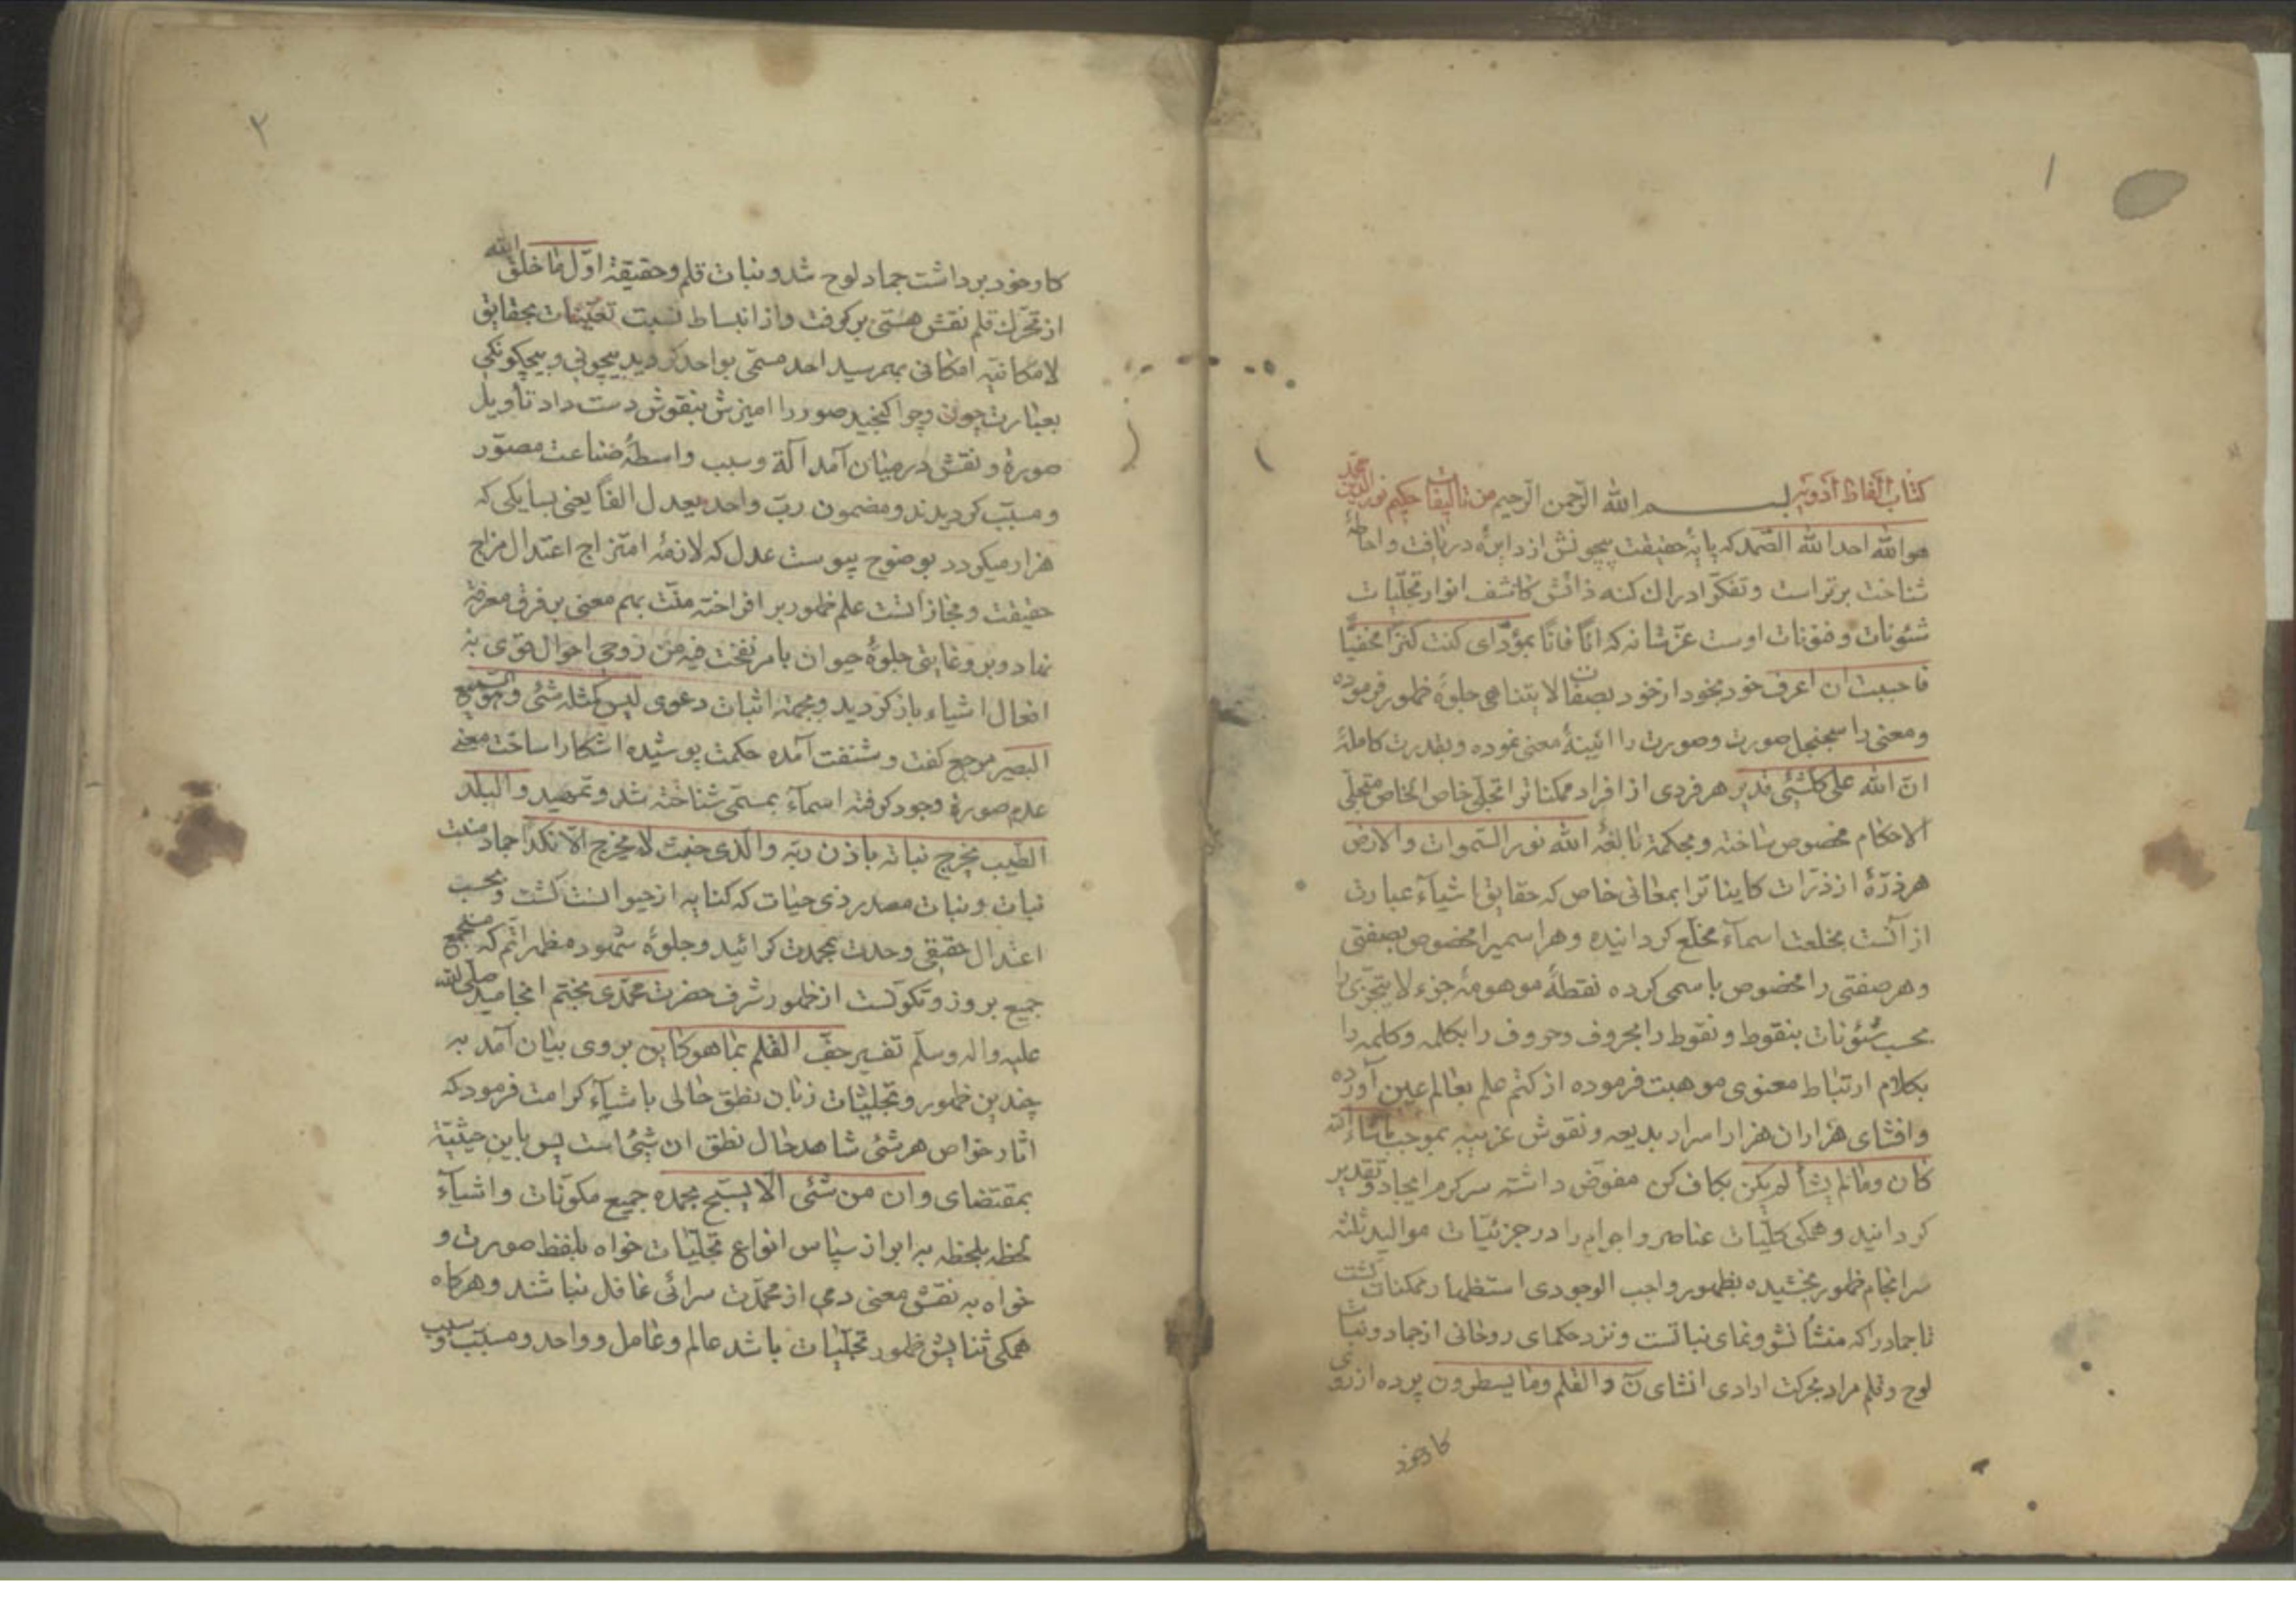 ۱
کتاب الفاظ ادویه بسم الله الرحمن الرحیم من تالیفات حکیم نورالدین محمد
هو الله احد الله الصمد که پایهٔ حقیقت بیچونش از دایرهٔ دریافت و احاطهٔ
شناخت برتر است و تفکر ادراک کنه ذاتش کاشف انوار تجلیات
شئونات و فنونات اوست عز شانه که آناً فاناً بمؤدای کنت کنزاً مخفیاً
فاحببت ان اعرف خود بخود از خود بصفات لا یتناهی جلوهٔ ظهور فرموده
و معنی را سجنجل صورت و صورت را ائینهٔ معنی نموده و بقدرت کاملهٔ
ان الله علی کلشیٔی قدیر هر فردی از افراد ممکنات را تجلی خاص الخاص متجلی
الاحکام مخصوص ساخته و بحکمة بالغهٔ الله نور السموات والارض
هر ذرهٔ از ذرات کاینات را بمعانی خاص که حقایق اشیآء عبارت
از آنست بخلعت اسمآء مخلع کردانیده و هر اسمیرا مخصوص بصفتی
و هر صفتی را مخصوص باسمی کرده نقطهٔ موهومهٔ جزء لا یتجزی را
بحسب شئونات بنقوط و نقوط را بحروف و حروف را بکلمه و کلمه را
بکلام ارتباط معنوی موهبت فرموده از کتم علم بعالم عین آورده
و افشای هزاران هزار اسرار بدیعه و نقوش غریبه بموجب ماشاء الله
کان و مالم یشأ لم یکن بکاف کن مفوض داشته سرکرم ایجاد و تقدیر
کردانید و همکی کلیات عناصر و اجرام را در جزئیات موالید ثلثه
سرانجام ظهور بخشیده بظهور واجب الوجودی استظهار ممکنات کشت
تا جماد را که منشأ نشو و نمای نباتست و نزد حکمای روحانی از جماد و نبات
لوح و قلم مراد بحرکت ارادی انشای ن والقلم وما یسطرون پرده از روی
کار خود
۲
کار خود برداشت جماد لوح شد و نبات قلم و حقیقة اول ما خلق الله
از تحرک قلم نقش هستی بر کرفت و از انبساط نسبت تعینات بحقایق
لامکانیه امکانی بهم رسید احد مسمی بواحد کردید بیچونی و بیچکونکی
بعبارت چون و چرا کنجید صور را امیزش بنقوش دست داد تأویل
صورة و نقش در میان آمد آلة و سبب واسطهٔ صناعت مصور
و مسبب کردیدند و مضمون رب واحد یعدل الفاً یعنی بسا یکی که
هزار میکردد بوضوح پیوست عدل که لازمهٔ امتزاج اعتدال مزاج
حقیقت و مجاز است علم ظهور بر افراخته منت بهم معنی بر فرق معرفة
نهاد و بر وغایتی جلوهٔ حیوان بامر نفخت فیه من روحی احوال قوی به
افعال اشیاء باز کردید و بجهة اثبات دعوی لیس کمثله شئی و هو السمیع
البصیر مرجع کفت و شنفت آمده حکمت پوشیده اشکارا ساخت معنی
عدم صورة وجود کرفته اسمآء بمسمی شناخته شد و تمهید والبلد
الطیب یخرج نباته باذن ربه والذی خبث لا یخرج الا نکداً جماد منبت
نبات و نبات مصدر ذی حیات که کنایه از حیوانست کشت و بحسب
اعتدال حقیقی وحدت بمحمدت کرائید و جلوهٔ شهود مظهر اتم که مستجمع
جمیع بروز و تکونست از ظهور شرف حضرت محمدی مختتم انجامید صلی الله
علیه واله وسلم تفسیر جف القلم بما هو کاین بروی بیان آمد به
چندین ظهور و تجلیات زبان نطق حالی باشیآء کرامت فرمود که
اثار خواص هر شئی شاهد حال نطق ان شیٔ است پس باین حیثیة
بمقتضای وان من شئی الا یسبح بحمده جمیع مکونات و اشیآء
لحظه بلحظه به ابراز سپاس انواع تجلیات خواه بلفظ صورت و
خواه به نقش معنی دمی از محمدت سرائی غافل نباشند و هرکاه
همکی ثنایش ظهور تجلیات باشد عالم و عامل و واحد و مسبب و سبب